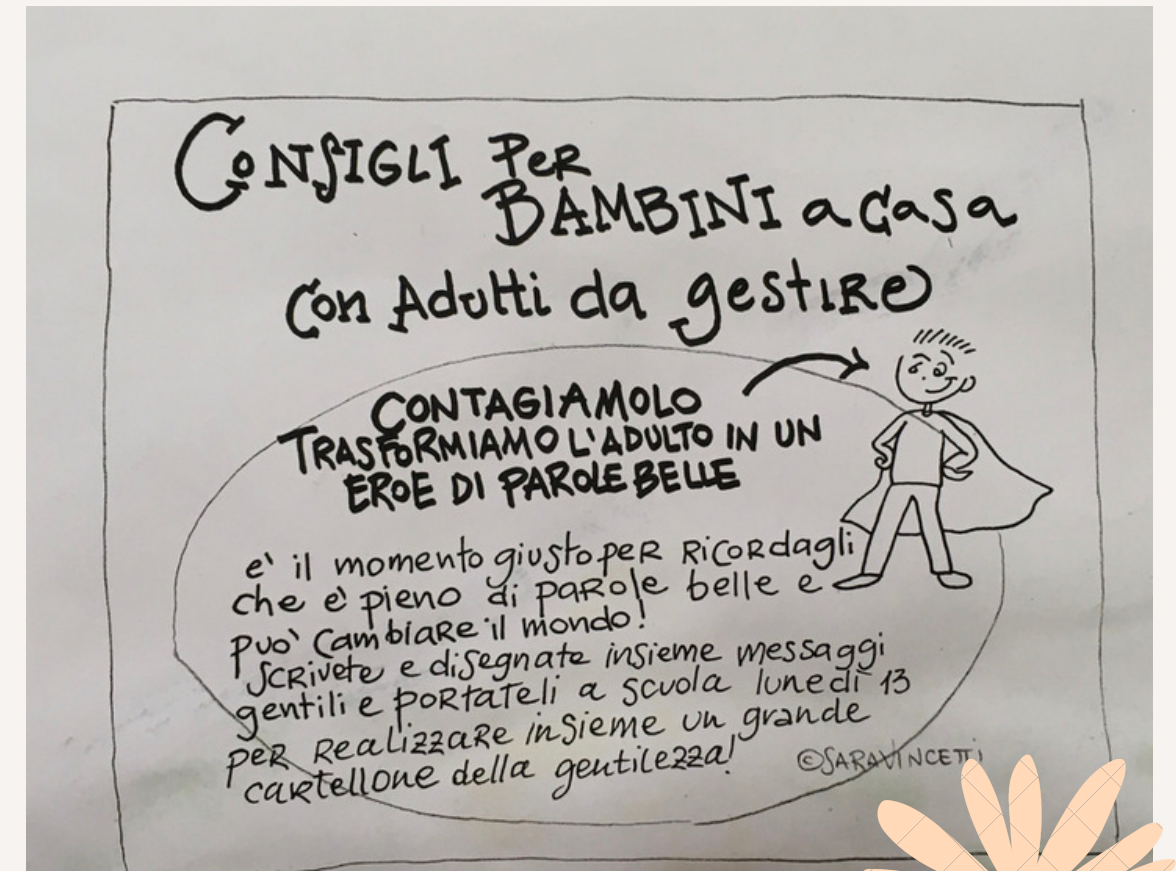 CONSIGLI PER
BAMBINI a casa
con Adulti da gestiRe
CONTAGIAMOLO
TRASFORMIAMO L'ADULTO IN UN
EROE DI PAROLE BELLE
e' il momento giusto peR RicoRdagli
che e' pieno di paRole belle e
può cambiaRe il mondo!
scRivete e disegnate insieme messaggi
gentili e poRtateli a scuola lunedì 13
peR RealizzaRe insieme un grande
caRtellone della gentilezza!
©SARAVINCETTI